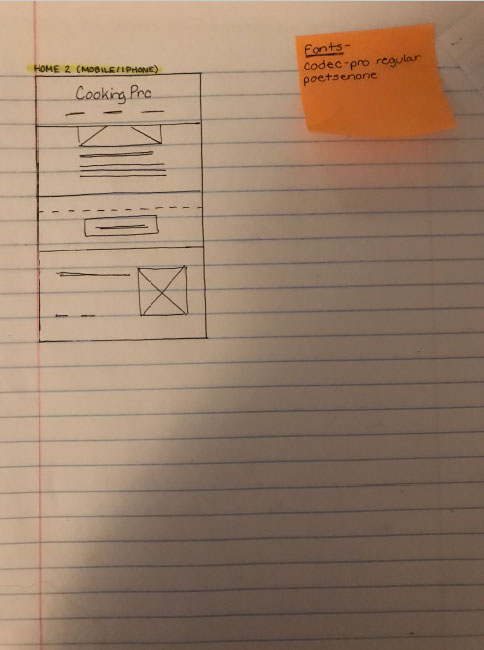 HOME 2 (MOBILE/IPHONE)
Cooking Pro
Fonts-
codec-pro regular
poetsenone